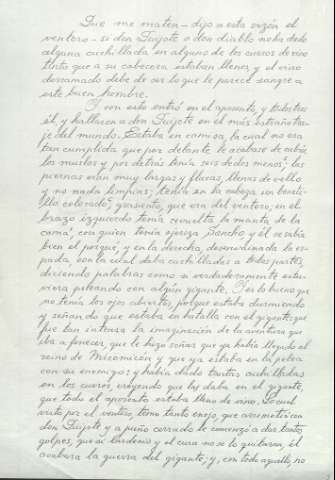 Que me maten -dijo a esta sazón el
ventero- si don Quijote o don diablo no ha dado
alguna cuchillada en alguno de los cueros de vino
tinto que a su cabecera estaban llenos, y el vino
derramado debe de ser lo que le parece sangre a
este buen hombre.
Y con esto entró en el aposento, y todos tras
él, y hallaron a don Quijote en el más extraño tra-
je del mundo. Estaba en camisa, la cual no era
tan cumplida que por delante le acabase de cubrir
los muslos y por detrás tenía seis dedos menos; las
piernas eran muy largas y flacas, llenas de vello
y no nada limpias; tenía en la cabeza un boneti-
llo colorado, grasiento, que era del ventero; en el
brazo izquierdo tenía revuelta la manta de la
cama, con quien tenía ojeriza Sancho y él se sabía
bien el porqué, y en la derecha, desenvainada la es-
pada, con la cual daba cuchilladas a todas partes,
diciendo palabras como si verdaderamente estu-
viera peleando con algún gigante. Y es lo bueno que
no tenía los ojos abiertos, porque estaba durmiendo
y soñando que estaba en batalla con el gigante; que
fue tan intensa la imaginación de la aventura que
iba a fenecer, que le hizo soñar que ya había llegado al
reino de Micomicón y que ya estaba en la pelea
con su enemigo; y había dado tantas cuchilladas
en los cueros, creyendo que las daba en el gigante,
que todo el aposento estaba lleno de vino. Lo cual
visto por el ventero, tomó tanto enojo, que arremetió con
don Quijote y a puño cerrado le comenzó a dar tantos
golpes, que si Cardenio y el cura no se lo quitaran, él
acabara la guerra del gigante; y, con todo aquello, no